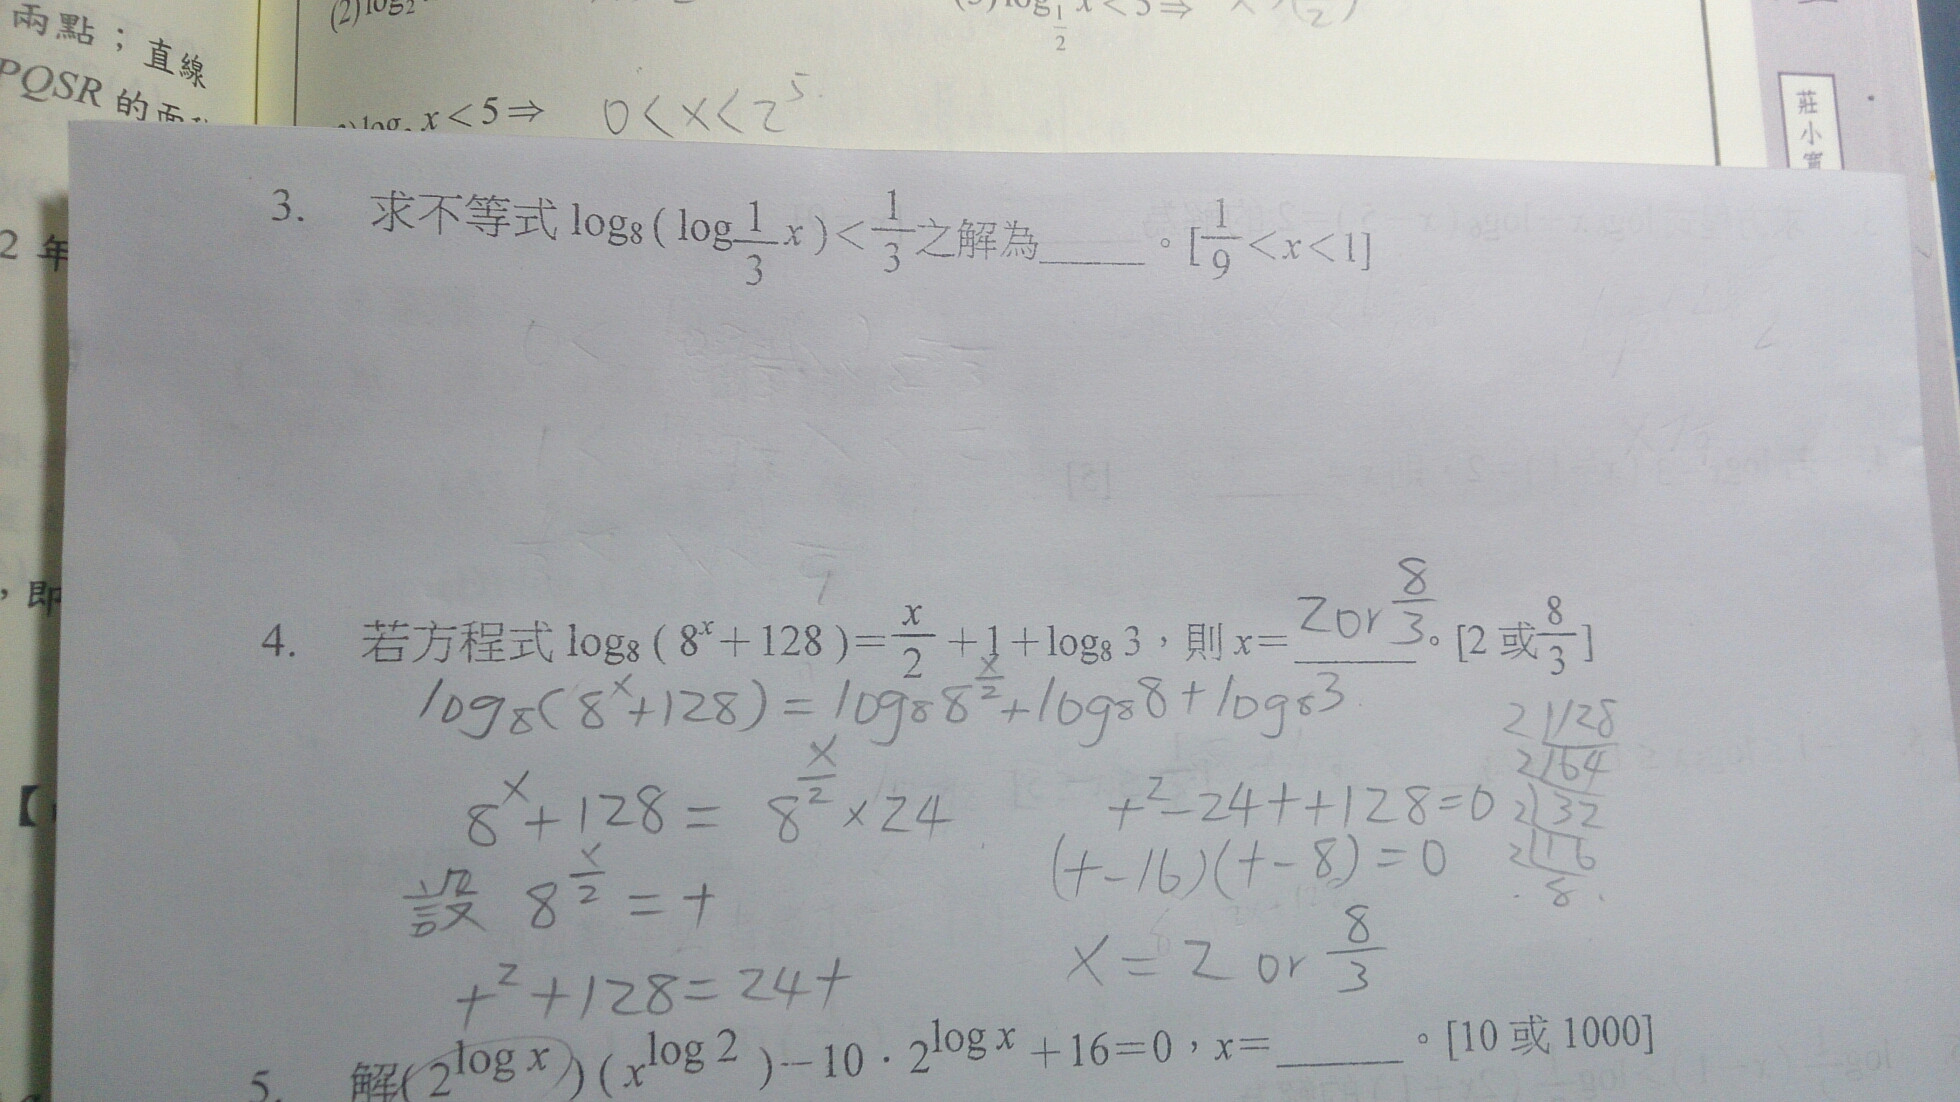 兩點；直線
PQSR 的面
2 年
，即
【
(2)log₂
x<5⇒ 0<x<2⁵
莊小實
3. 求不等式 log₈(log_{1/3} x)<1/3之解為____。[1/9<x<1]
4. 若方程式 log₈(8ˣ+128)=x/2+1+log₈ 3，則 x=2 or 8/3。[2 或 8/3]
log₈(8ˣ+128)=log₈8^{x/2}+log₈8+log₈3
8ˣ+128=8^{x/2}×24
設 8^{x/2}=t
t²+128=24t
t²-24t+128=0
(t-16)(t-8)=0
x=2 or 8/3
2|128
2|64
2|32
2|16
8
5. 解(2^{log x})(x^{log 2})-10·2^{log x}+16=0，x=____。[10 或 1000]